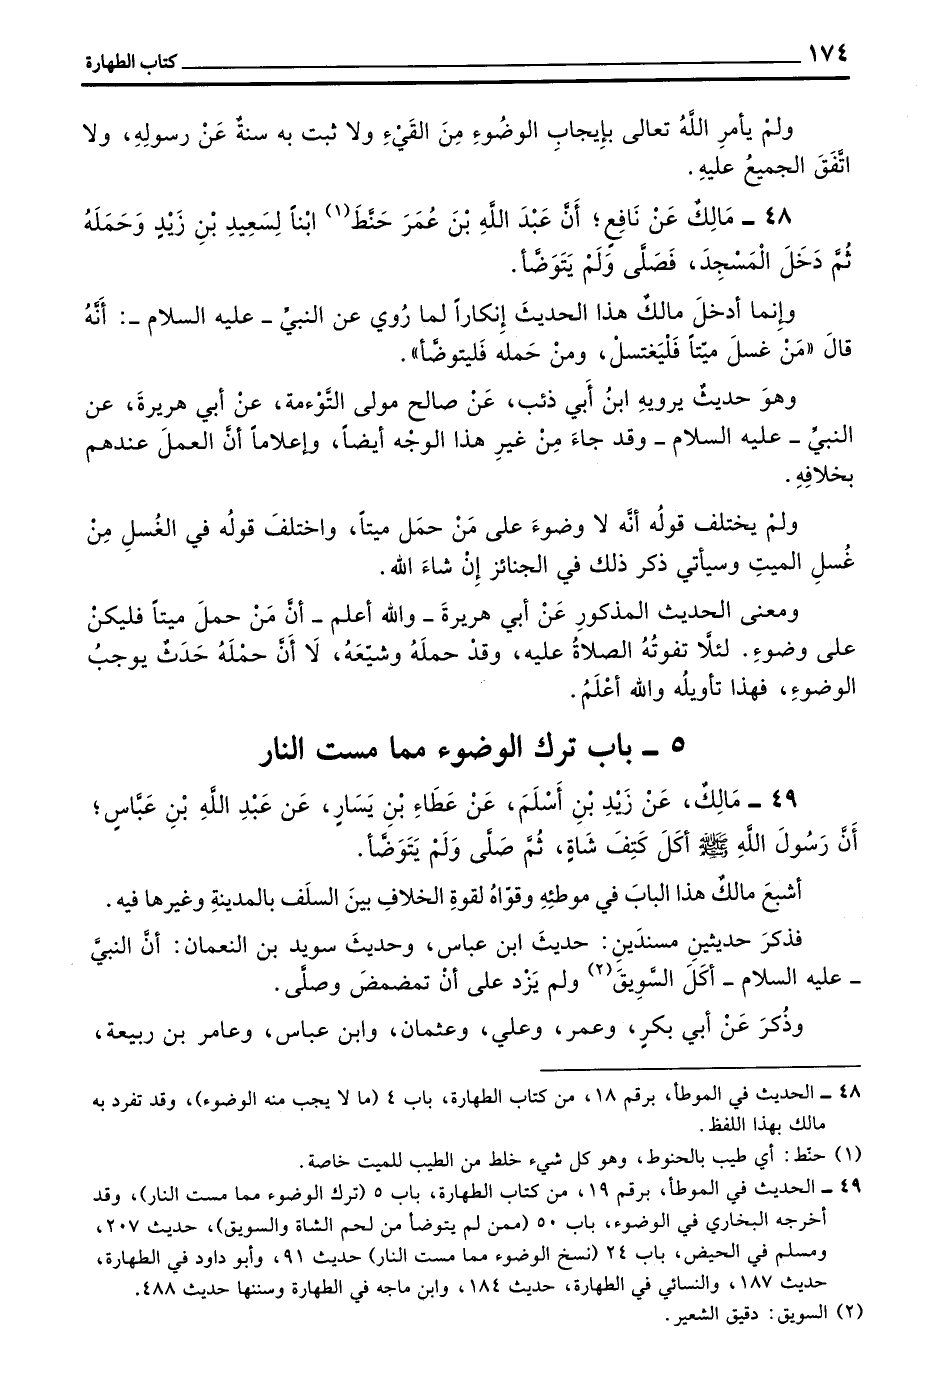 ١٧٤ ــــــ كتاب الطهارة
ولمْ يأمرِ اللَّهُ تعالى بإيجابِ الوضُوءِ مِنَ القَيْءِ ولا ثبت به سنةٌ عَنْ رسولِهِ، ولا
اتَّفَقَ الجميعُ عليهِ.
٤٨ ـ مَالِكٌ عَنْ نَافِعٍ؛ أَنَّ عَبْدَ اللَّهِ بْنَ عُمَرَ حَنَّطَ(١) ابْناً لِسَعِيدِ بْنِ زَيْدٍ وَحَمَلَهُ
ثُمَّ دَخَلَ الْمَسْجِدَ، فَصَلَّى وَلَمْ يَتَوَضَّأْ.
وإنما أدخلَ مالكٌ هذا الحديثَ إنكاراً لما رُوي عن النبيِّ ـ عليه السلام ـ: أَنَّهُ
قالَ «مَنْ غسلَ ميّتاً فَلْيَغتسلْ، ومنْ حَمله فَليتوضَّأ».
وهوَ حديثٌ يرويهِ ابنُ أَبي ذئب، عَنْ صالح مولى التَّوْءمة، عنْ أبي هريرةَ، عن
النبيِّ ـ عليه السلام ـ وقد جاءَ مِنْ غيرِ هذا الوجْه أيضاً، وإعلاماً أنَّ العملَ عندهم
بخلافِهِ.
ولمْ يختلف قولُه أنَّه لا وضوءَ على مَنْ حمَل ميتاً، واختلفَ قولُه في الغُسلِ مِنْ
غُسلِ الميتِ وسيأتي ذكر ذلك في الجنائز إنْ شاءَ الله.
ومعنى الحديث المذكورِ عَنْ أبي هريرةَ ـ والله أعلم ـ أنَّ مَنْ حملَ ميتاً فليكنْ
على وضوءٍ. لئلَّا تفوتُهُ الصلاةُ عليه، وقدْ حملَهُ وشيّعَهُ، لَا أَنَّ حمْلَهُ حَدَثٌ يوجبُ
الوضوءِ، فهذا تأويلُه والله أعْلَمُ.
٥ ـ باب ترك الوضوء مما مست النار
٤٩ ـ مَالِكٌ، عَنْ زَيْدِ بْنِ أَسْلَمَ، عَنْ عَطَاءِ بْنِ يَسَارٍ، عَن عَبْدِ اللَّهِ بْنِ عَبَّاسٍ؛
أَنَّ رَسُولَ اللَّهِ ﷺ أَكَلَ كَتِفَ شَاةٍ، ثُمَّ صَلَّى وَلَمْ يَتَوَضَّأْ.
أشبعَ مالكٌ هذا البابَ في موطئِهِ وقوّاهُ لقوةِ الخلافِ بينَ السلَف بالمدينةِ وغيرها فيه.
فذكرَ حديثينِ مسندَينِ: حديثَ ابن عباس، وحديثَ سويد بن النعمان: أنَّ النبيَّ
ـ عليه السلام ـ أكَلَ السَّوِيقَ(٢) ولم يَزْد على أنْ تمضمضَ وصلَّى.
وذُكرَ عَنْ أبي بكرٍ، وعمر، وعلي، وعثمان، وابن عباس، وعامر بن ربيعة،
٤٨ ـ الحديث في الموطأ، برقم ١٨، من كتاب الطهارة، باب ٤ (ما لا يجب منه الوضوء)، وقد تفرد به
مالك بهذا اللفظ.
(١) حنّط: أي طيب بالحنوط، وهو كل شيء خلط من الطيب للميت خاصة.
٤٩ ـ الحديث في الموطأ، برقم ١٩، من كتاب الطهارة، باب ٥ (ترك الوضوء مما مست النار)، وقد
أخرجه البخاري في الوضوء، باب ٥٠ (ممن لم يتوضأ من لحم الشاة والسويق)، حديث ٢٠٧،
ومسلم في الحيض، باب ٢٤ (نسخ الوضوء مما مست النار) حديث ٩١، وأبو داود في الطهارة،
حديث ١٨٧، والنسائي في الطهارة، حديث ١٨٤، وابن ماجه في الطهارة وسننها حديث ٤٨٨.
(٢) السويق: دقيق الشعير.